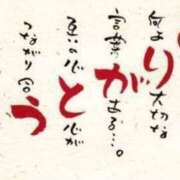 何より大切な
言葉がある…。
互いの心と心が
つながり合う